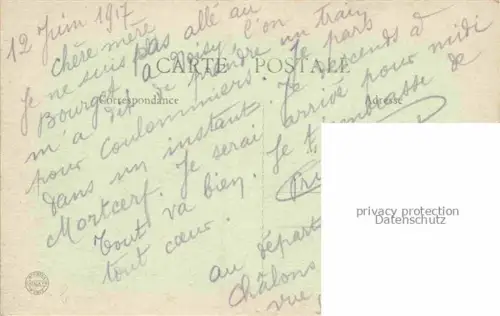 12 Juin 1917
Chère mère
Je ne suis pas allé au
Bourget à Noisy l'on
m'a dit de prendre un train
pour Coulommiers. Je pars
dans un instant. Je descends à
Mortcerf. Je serai arrivé pour midi
Tout va bien. Je t'embrasse de
tout cœur.
au départ
Châlons
vue
CARTE POSTALE
Correspondance
Adresse
privacy protection
Datenschutz